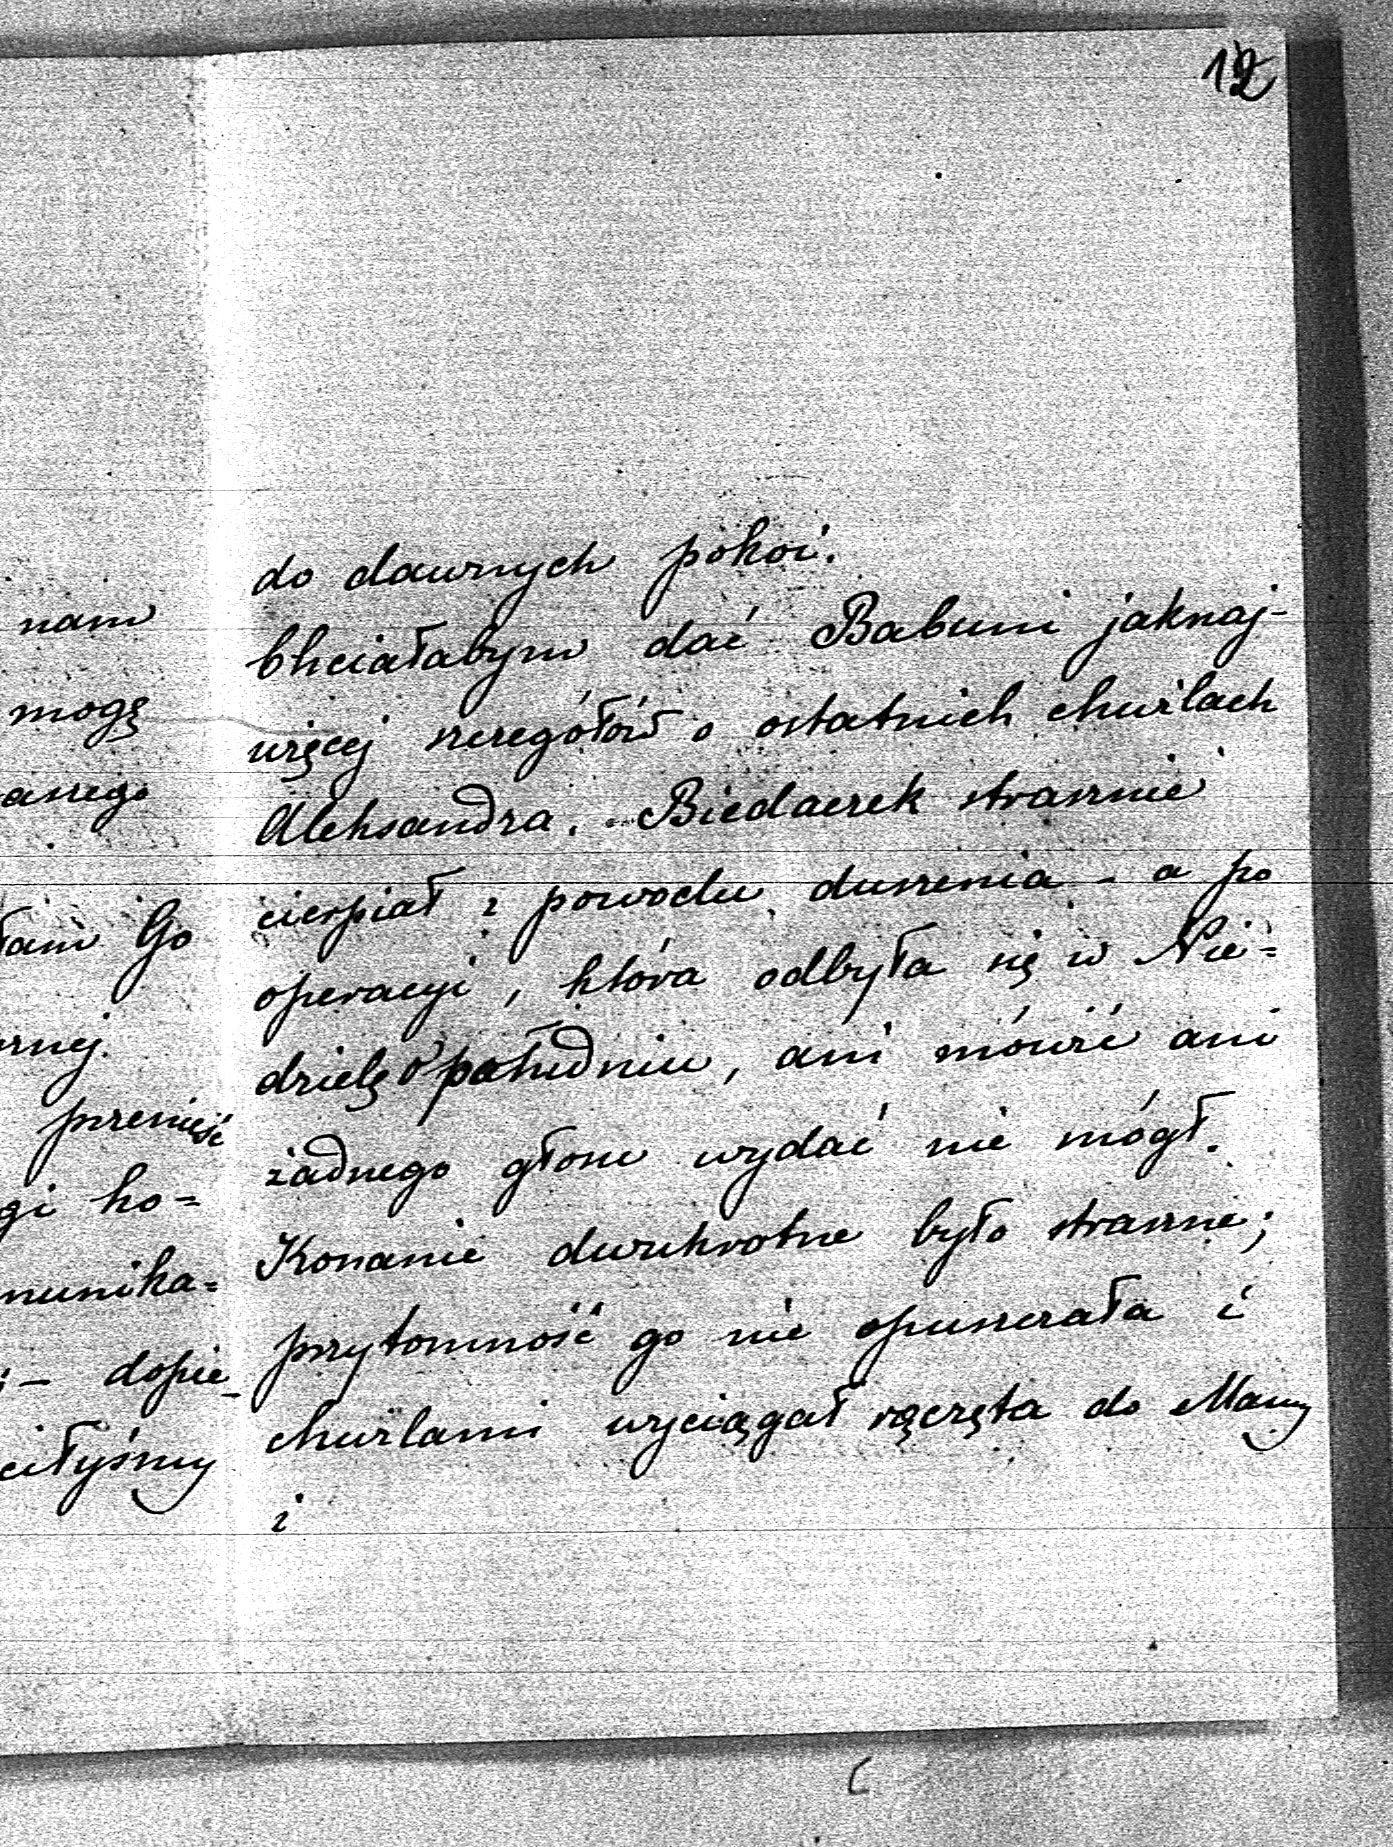 12
do dawnych pokoi.
Chciałabym dać Babuni jaknaj-
więcej szczegółów o ostatnich chwilach
Aleksandra. Biedaczek strasznie
cierpiał z powodu duszenia - a po
operacyi, która odbyła się w Nie=
dzielę o południu, ani mówić ani
żadnego głosu wydać nie mógł.
Konanie dwukrotne było straszne;
przytomność go nie opuszczała i
chwilami wyciągał rączęta do Mamy
i
nam
mogę
anego
łam Go
rnej.
przenieść
gi ko=
munika=
i – dopie_
ciłyśmy